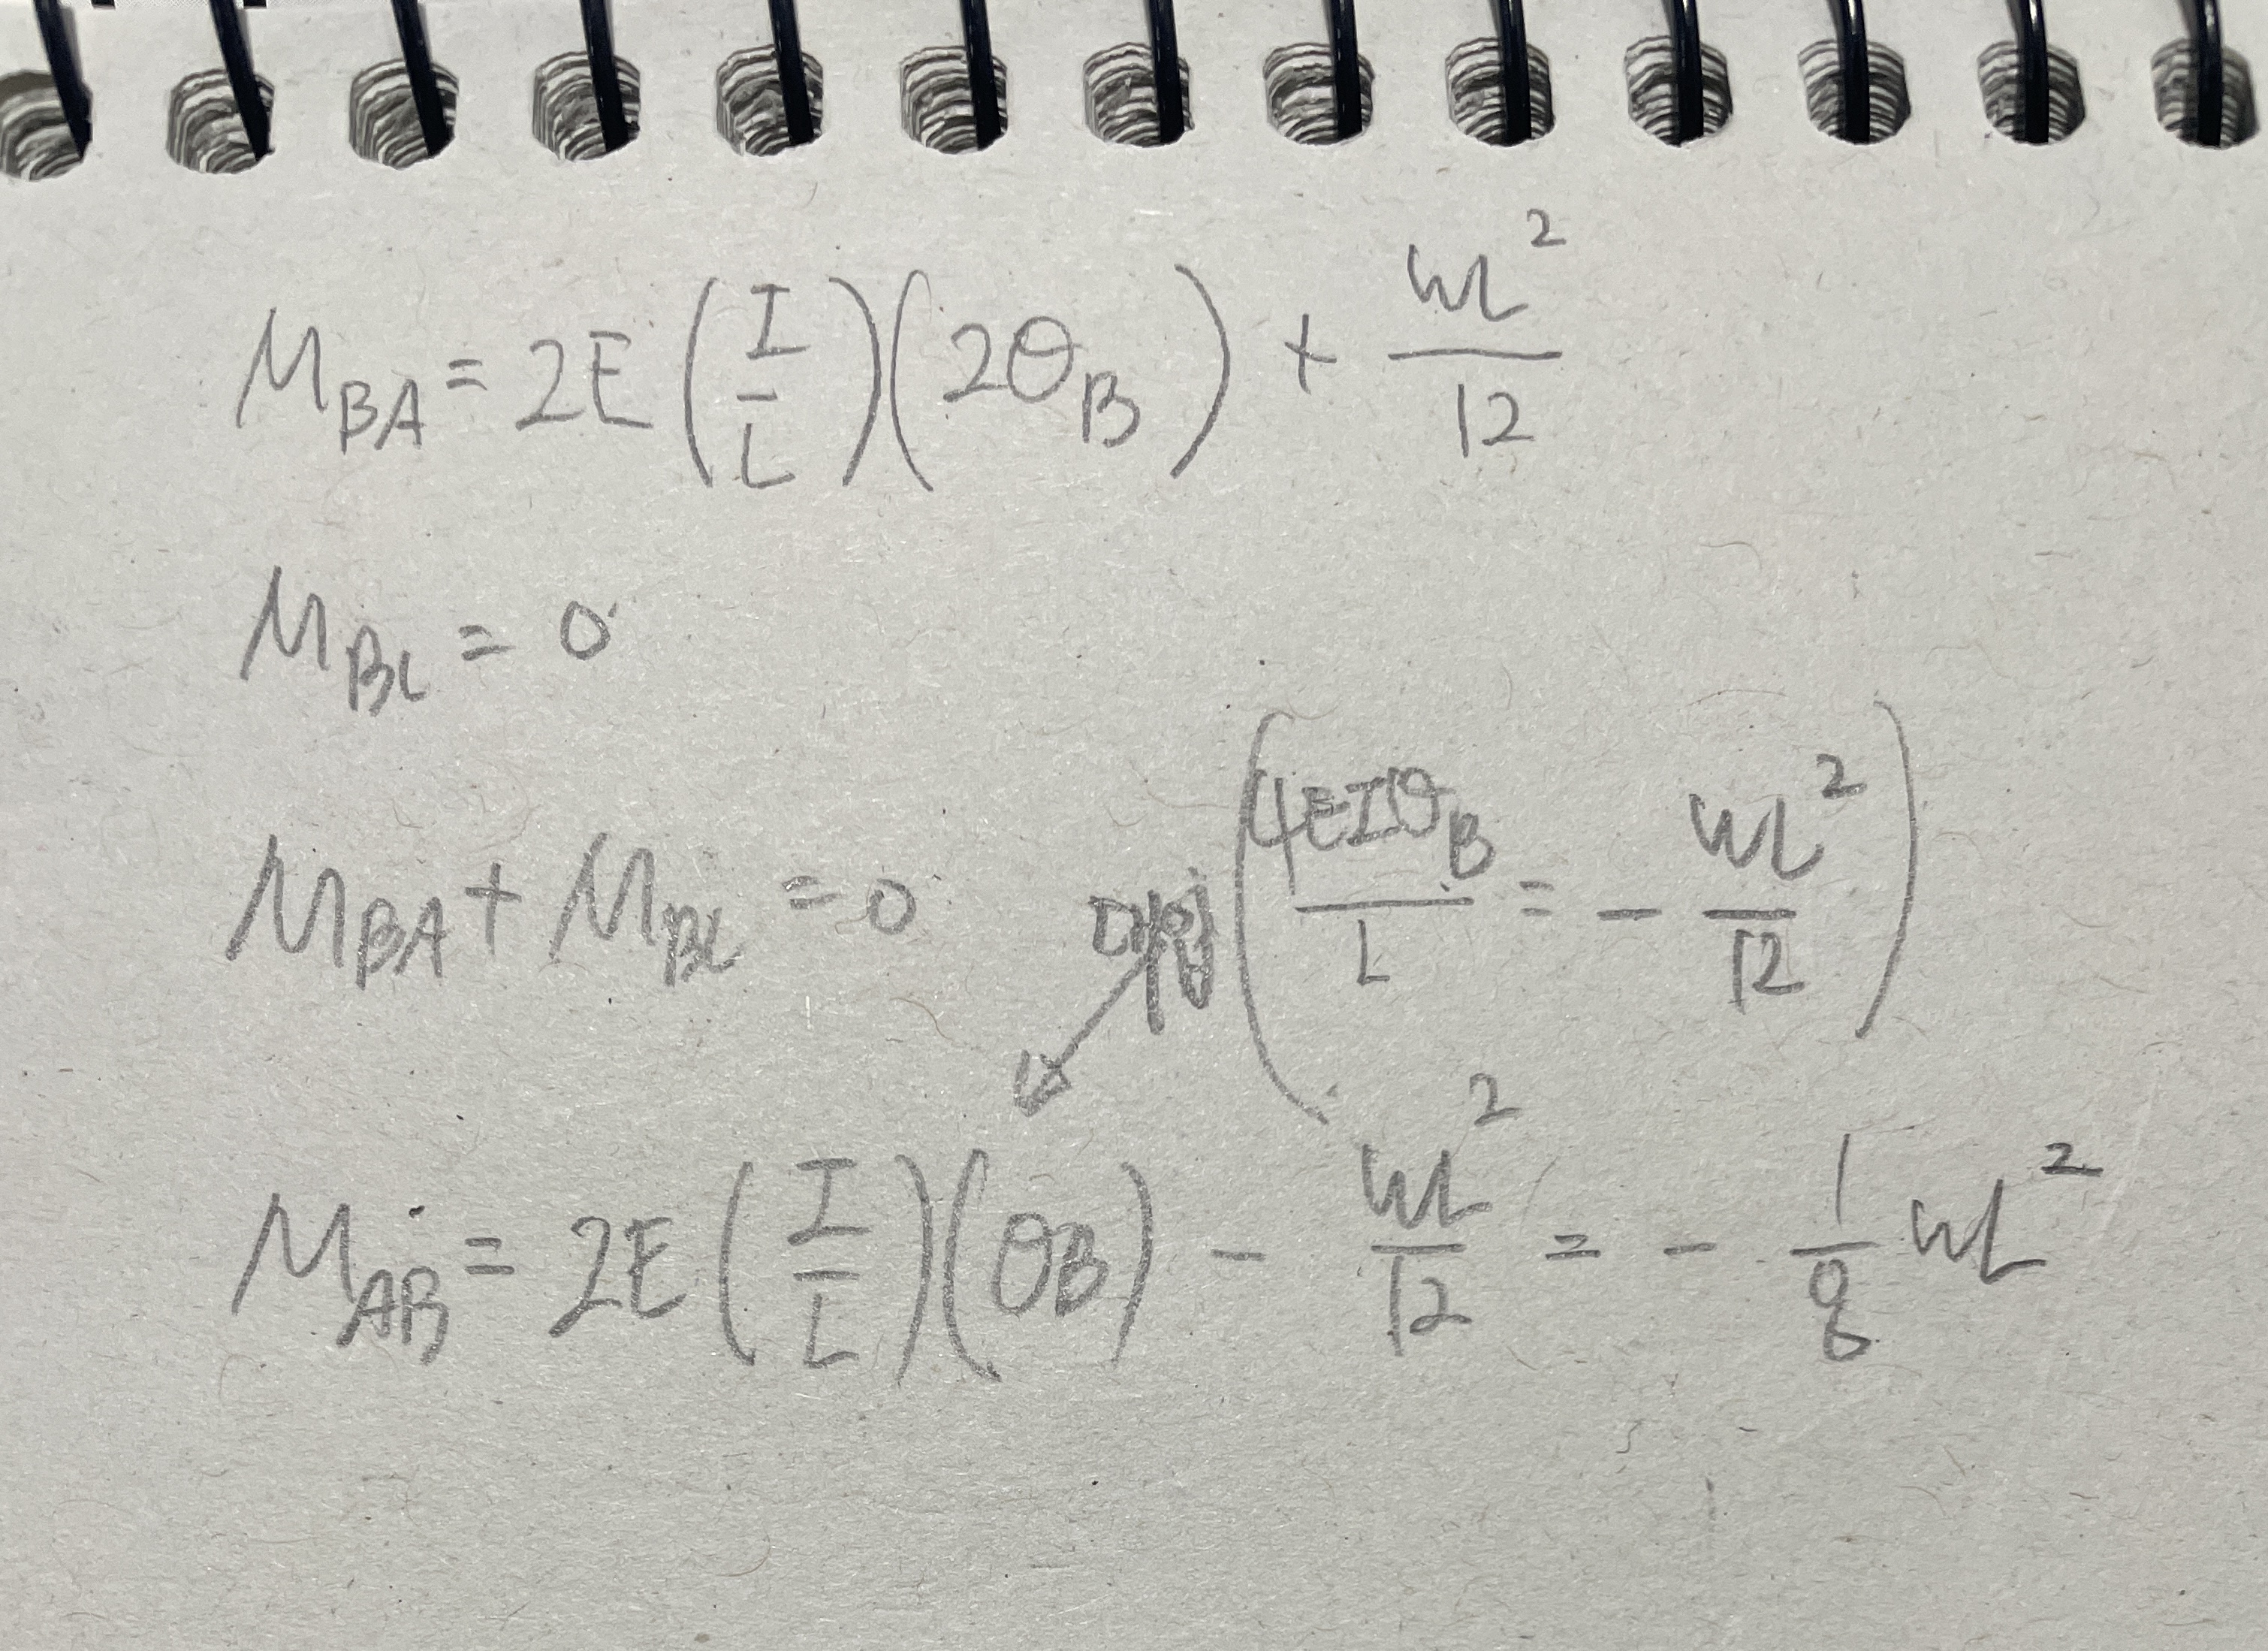 M_BA = 2E (I/L)(2θ_B) + wL²/12
M_BC = 0
M_BA + M_BC = 0 대입 (4EIθ_B/L = - wL²/12)
M_AB = 2E (I/L)(θB) - wL²/12 = - 1/8 wL²